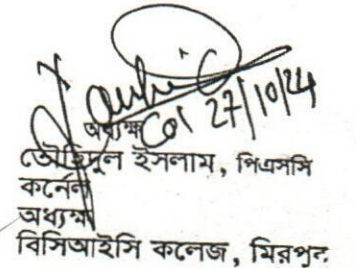 Col 27/10/24
অধ্যক্ষ
তৌহিদুল ইসলাম, পিএসসি
কর্নেল
অধ্যক্ষ
বিসিআইসি কলেজ, মিরপুর